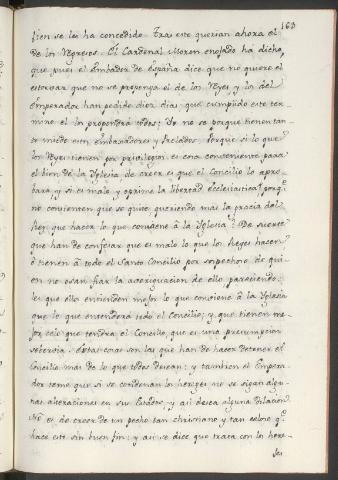 163
sien se les ha concedido. Tras este querian ahora el
de los Negocios. El Cardenal Moron enojado ha dicho,
que pues el Embador de España dice que no quiere el
estorvar que no se proponga el de los Reyes y los del
Emperador han pedido diez dias, que cumplido este ter-
mino el lo propondrá todos; Yo no se porque tienen tan-
to miedo estos Embaxadores y Prelados. Porque si lo que
los Reyes tienen por privilegios es cosa conveniente para
el bien de la Yglesia de creer es que el Concilio lo apro-
bara, y si es malo y oprime la libertad eclesiastica porq.e
no consienten que se quite, queriendo mas la gracia del
Rey, que hacer lo que conviene â la Yglesia? De suerte
que han de confesar que es malo lo que los Reyes hacen
ô tienen â todo el Santo Concilio por sospechoso de qui-
en no osan fiar la averiguacion de ello pareciendo-
les que ellos entienden mejor lo que conviene â la Yglesia
que lo que entenderá todo el Concilio; y que tienen me-
jor celo que tendra el Concilio, que es una presumpcion
sobervia. Estas cosas son las que han de hacer detener el
Concilio mas de lo que todos desean; y tambien el Empera-
dor teme que si se condenan los hereges no se sigan algu-
nas alteraciones en sus Estados, y asi desea alguna dilacion
No es de creer de un pecho tan christiano y tan celoso q.e
hace esto sin buen fin; y asi se dice que trata con los here-
jes